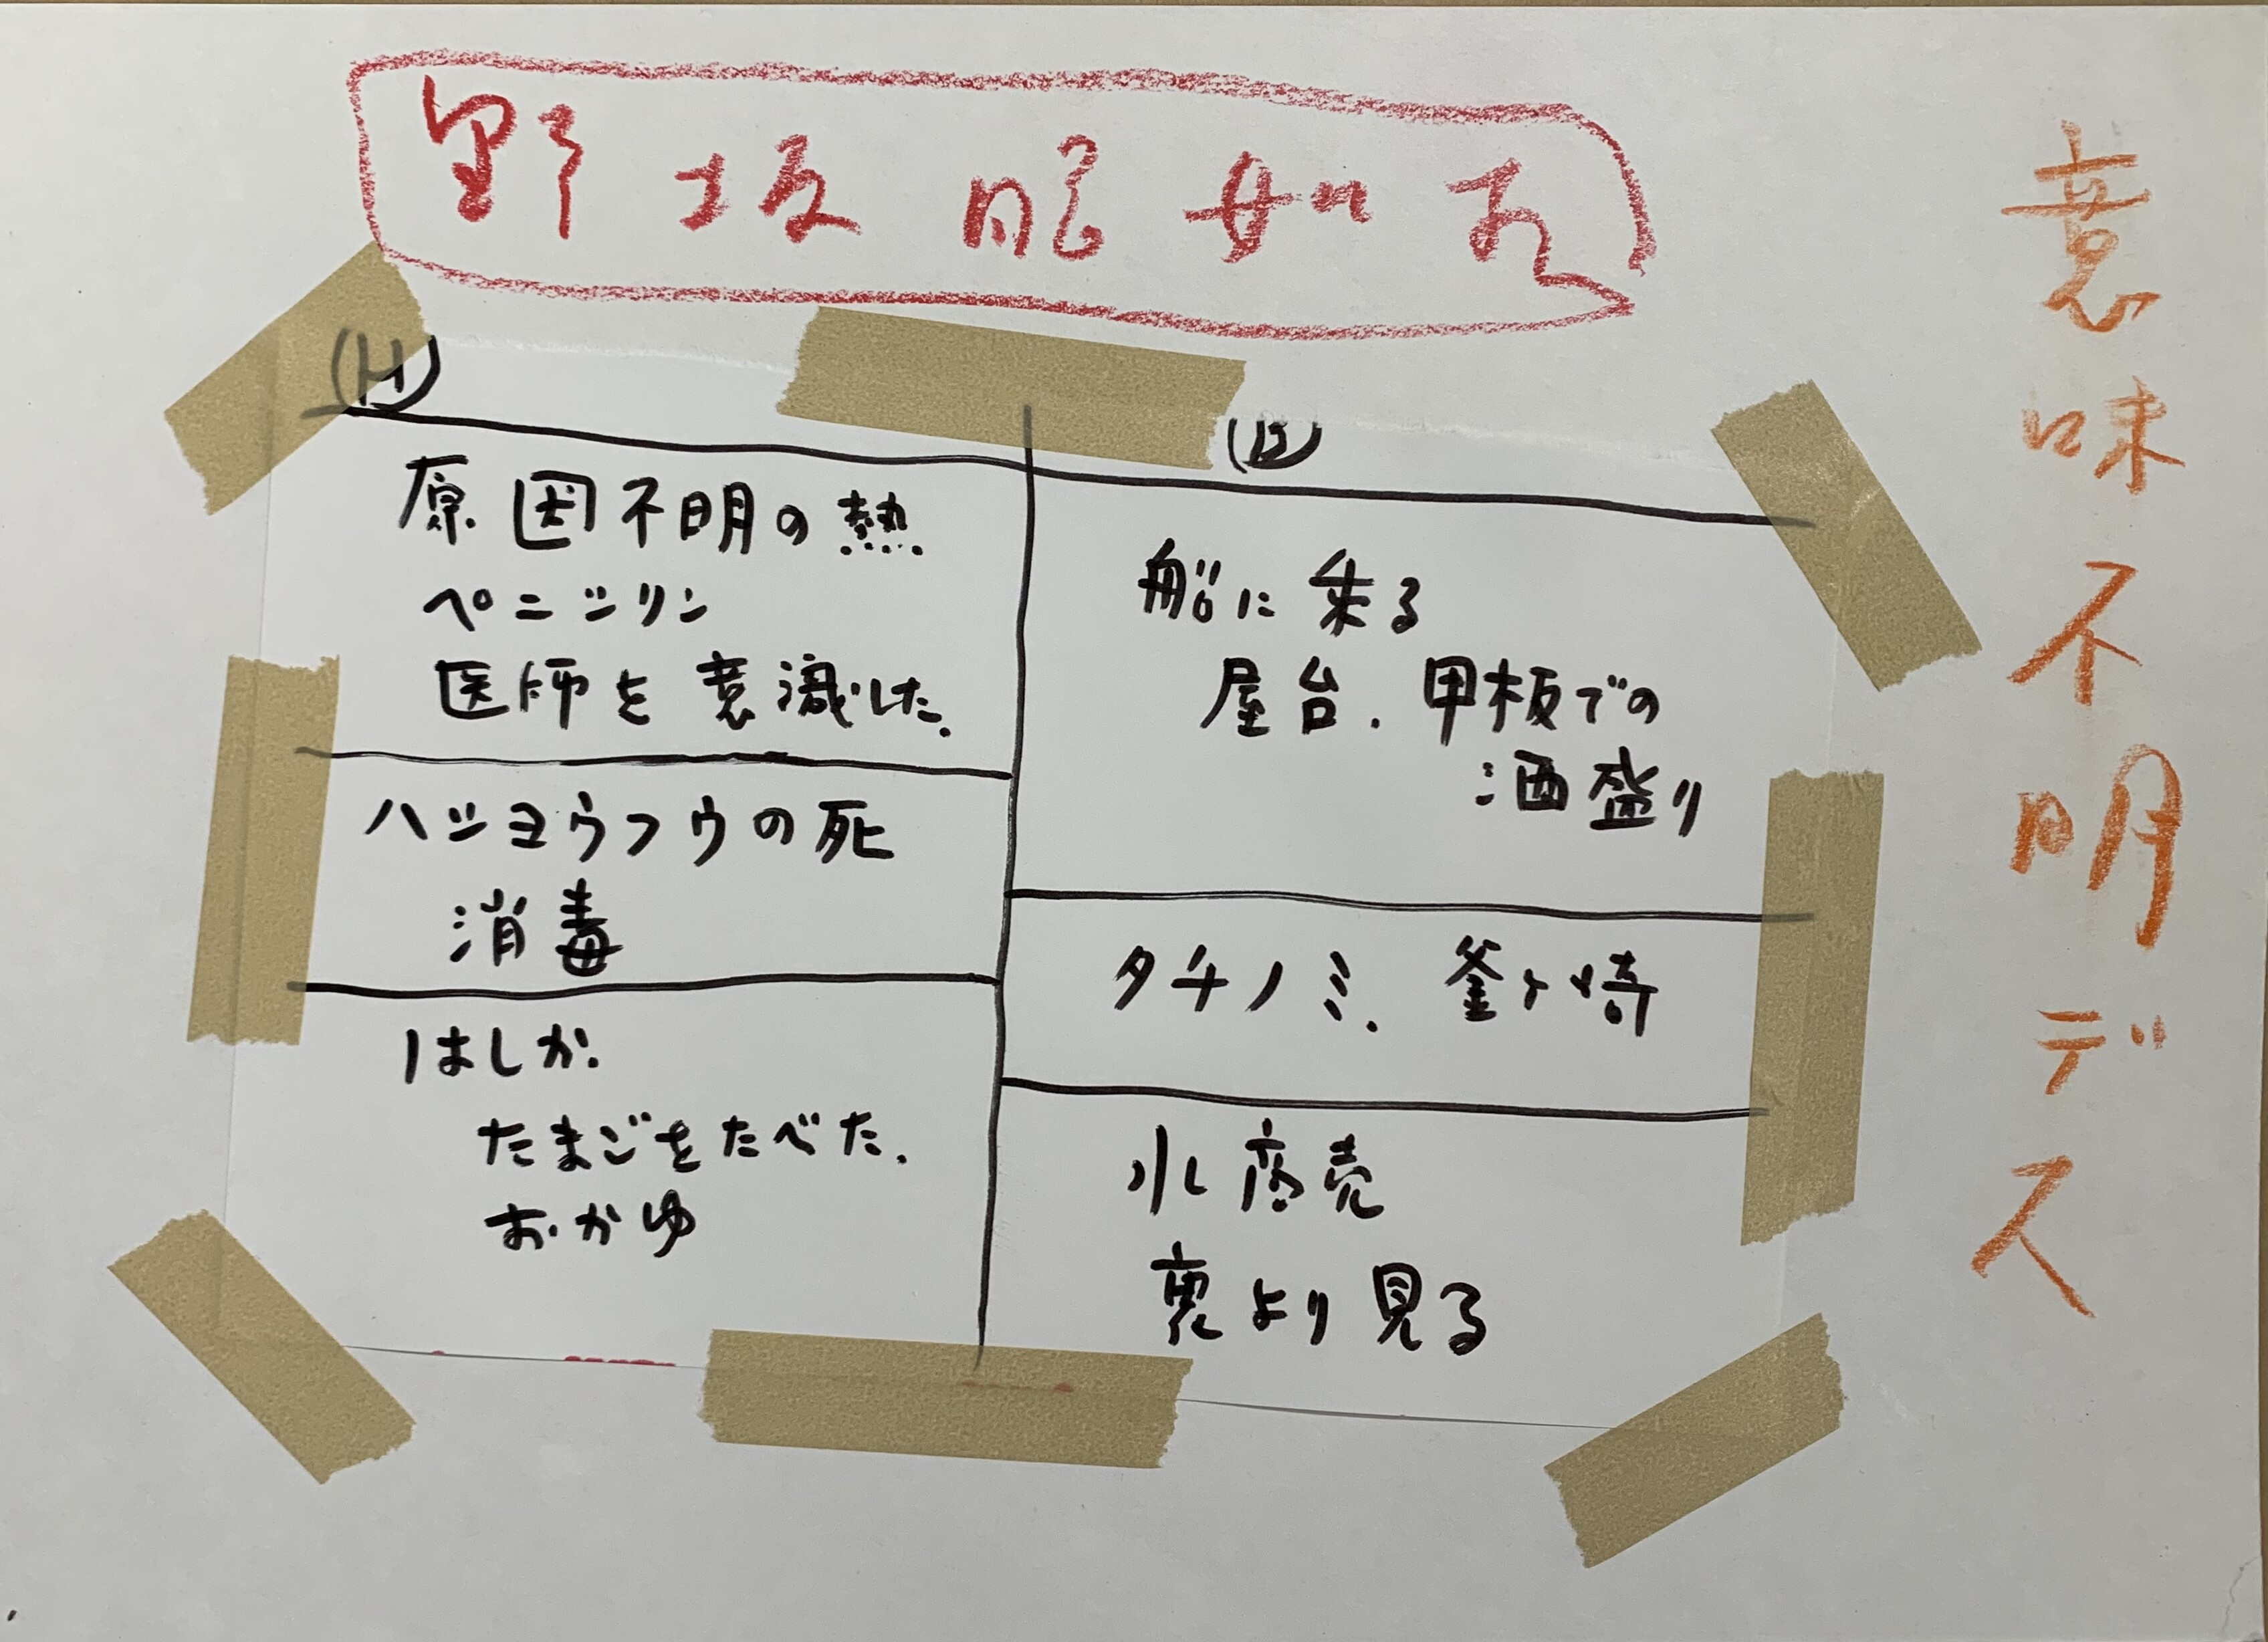 野坂昭如
意味不明デス
原因不明の熱
ペニシリン
医師を意識した.
ハショウフウの死
消毒
はしか.
たまごをたべた.
おかゆ
(12)
船に乗る
屋台.甲板での
酒盛り
タチノミ.釜ヶ崎
水商売
裏より見る